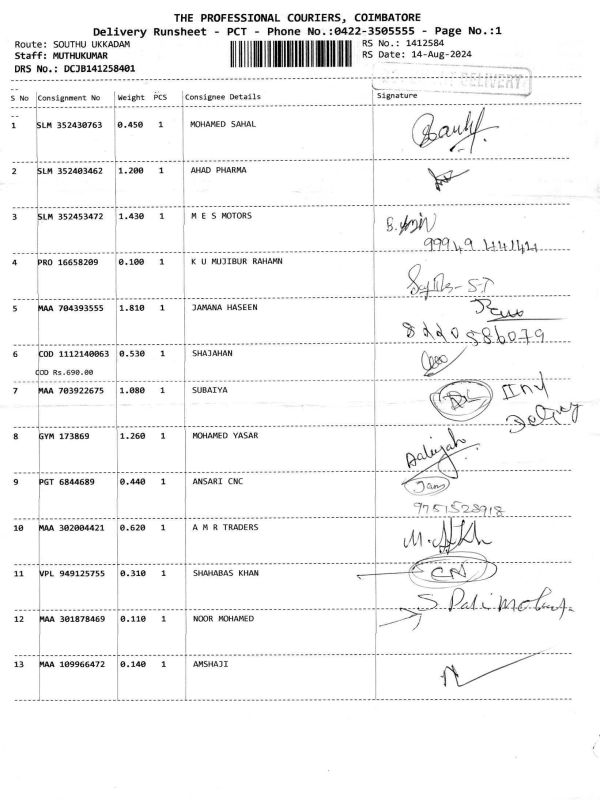 THE PROFESSIONAL COURIERS, COIMBATORE
Delivery Runsheet - PCT - Phone No.:0422-3505555 - Page No.:1
Route: SOUTHU UKKADAM RS No.: 1412584
Staff: MUTHUKUMAR RS Date: 14-Aug-2024
DRS No.: DCJB141258401
DELIVERY
S No Consignment No Weight PCS Consignee Details Signature
1 SLM 352430763 0.450 1 MOHAMED SAHAL
2 SLM 352403462 1.200 1 AHAD PHARMA
3 SLM 352453472 1.430 1 M E S MOTORS
99949 44144
4 PRO 16658209 0.100 1 K U MUJIBUR RAHAMN
5 MAA 704393555 1.810 1 JAMANA HASEEN
8220586079
6 COD 1112140063 0.530 1 SHAJAHAN
COD Rs.690.00
7 MAA 703922675 1.080 1 SUBAIYA
8 GYM 173869 1.260 1 MOHAMED YASAR
Aaliyah
9 PGT 6844689 0.440 1 ANSARI CNC
9751528918
10 MAA 302004421 0.620 1 A M R TRADERS
11 VPL 949125755 0.310 1 SHAHABAS KHAN
12 MAA 301878469 0.110 1 NOOR MOHAMED
13 MAA 109966472 0.140 1 AMSHAJI